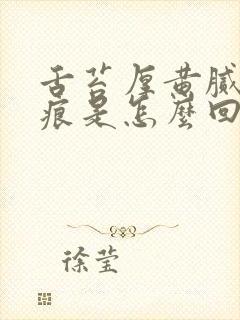 舌苔厚黄腻
痕是怎麼回
徐莹